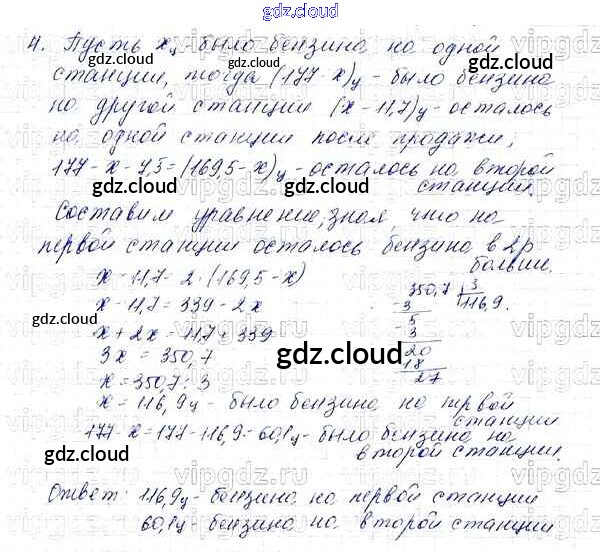 gdz.cloud
4. Пусть x ц было бензина на одной
станции, тогда (177-x)ц - было бензина
на другой станции (x-11,7)ц - осталось
на одной станции после продажи;
177-x-7,5=(169,5-x)ц - осталось на второй
станции.
Составим уравнение, зная что на
первой станции осталось бензина в 2 р
больше.
x-11,7=2·(169,5-x)
x-11,7=339-2x
x+2x=11,7+339
3x=350,7
x=350,7:3
350,7 | 3
3 | 116,9.
5
3
20
18
27
x=116,9ц - было бензина на первой
станции
177-x=177-116,9=60,1ц - было бензина на
второй станции.
Ответ: 116,9ц - бензина на первой станции
60,1ц - бензина на второй станции
gdz.cloud
gdz.cloud
gdz.cloud
gdz.cloud
gdz.cloud
gdz.cloud
gdz.cloud
gdz.cloud
gdz.cloud